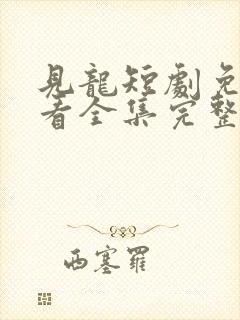 見龍短劇免
看全集完整
西塞羅